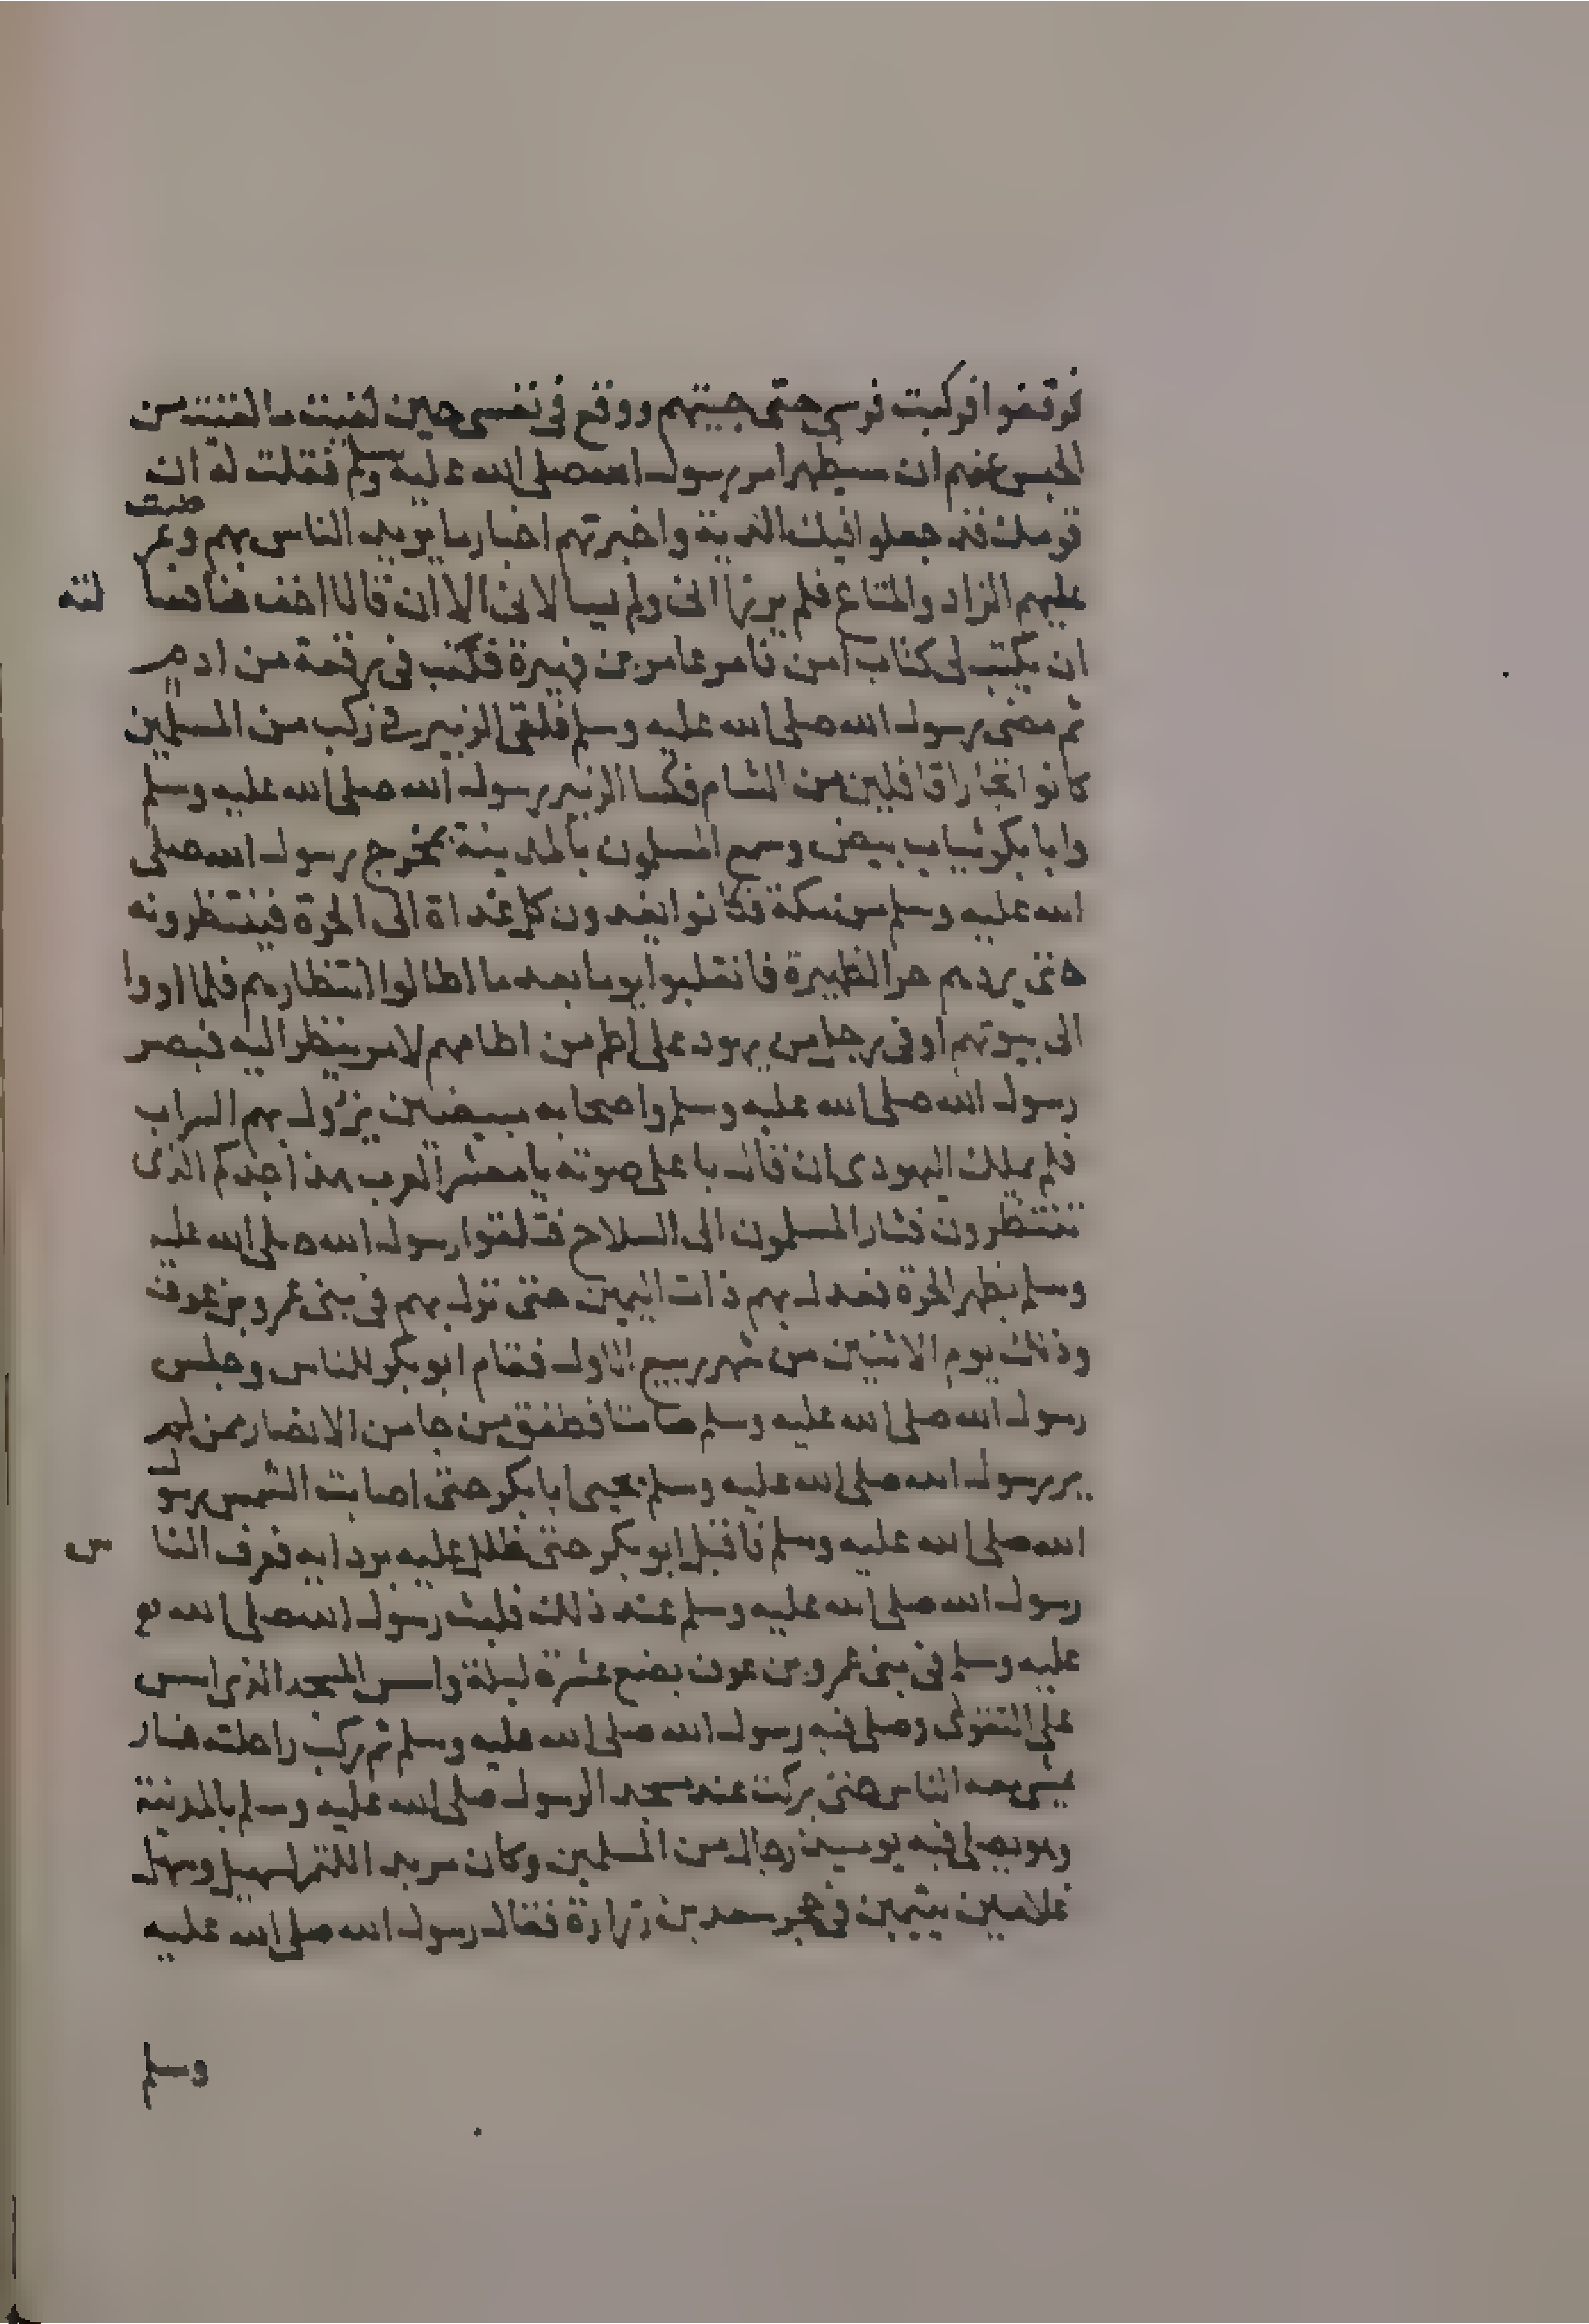 فوقفوا فركبت فرسى حتى جيتهم ووقع فى نفسى حين لقيت ما لقيت من
الحبس عنهم ان سيظهر امر رسول الله صلى الله عليه وسلم فقلت له ان
قومك قد جعلوا فيك الدية واخبرتهم اخبار ما يريد الناس بهم وعرضت
عليهم الزاد والمتاع فلم يرزآنى ولم يسالانى الا ان قالا اخف عنا فسالته
ان يكتب لى كتاب امن فامر عامر بن فهيرة فكتب فى رقعة من ادم
ثم مضى رسول الله صلى الله عليه وسلم فلقى الزبير فى ركب من المسلمين
كانوا تجارا قافلين من الشام فكسا الزبير رسول الله صلى الله عليه وسلم
وابا بكر ثياب بيض وسمع المسلمون بالمدينة بمخرج رسول الله صلى
الله عليه وسلم من مكة فكانوا يغدون كل غداة الى الحرة فينتظرونه
حتى يردهم حر الظهيرة فانقلبوا يوما بعد ما اطالوا انتظارهم فلما اووا
الى بيوتهم اوفى رجل من يهود على اطم من اطامهم لامر ينظر اليه فبصر
رسول الله صلى الله عليه وسلم واصحابه مبيضين يزول بهم السراب
فلم يملك اليهودى ان قال باعلى صوته يا معشر العرب هذا جدكم الذى
تنتظرون فثار المسلمون الى السلاح فتلقوا رسول الله صلى الله عليه
وسلم بظهر الحرة فعدل بهم ذات اليمين حتى نزل بهم فى بنى عمرو بن عوف
وذلك يوم الاثنين من شهر ربيع الاول فقام ابو بكر للناس وجلس
رسول الله صلى الله عليه وسلم صامتا فطفق من جا من الانصار ممن لم
ير رسول الله صلى الله عليه وسلم يحيى ابا بكر حتى اصابت الشمس رسول
الله صلى الله عليه وسلم فاقبل ابو بكر حتى ظلل عليه بردايه فعرف الناس
رسول الله صلى الله عليه وسلم عند ذلك فلبث رسول الله صلى الله
عليه وسلم فى بنى عمرو بن عوف بضع عشرة ليلة واسس المسجد الذى اسس
على التقوى وصلى فيه رسول الله صلى الله عليه وسلم ثم ركب راحلته فسار
يمشى معه الناس حتى بركت عند مسجد الرسول صلى الله عليه وسلم بالمدينة
وهو يصلى فيه يوميذ رجال من المسلمين وكان مربد اللتمر لسهيل وسهل
غلامين يتيمين فى حجر سعد بن زرارة فقال رسول الله صلى الله عليه
وسلم